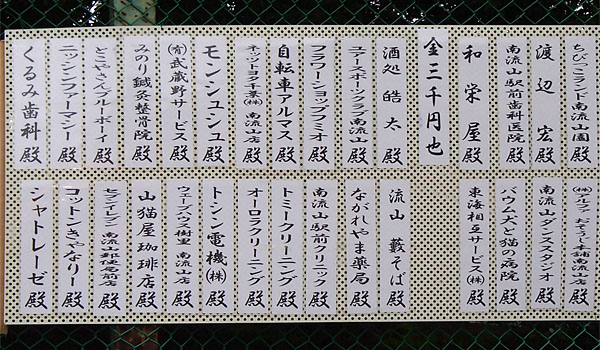 ちびっこランド南流山園 殿
渡辺 宏 殿
南流山駅前歯科医院 殿
和栄屋 殿
金三千円也
酒処 皓太 殿
コナミスポーツクラブ南流山 殿
フラワーショップフミオ 殿
自転車アルマス 殿
ネッツトヨタ千葉(株) 南流山店 殿
モンシュシュ 殿
(有)武蔵野サービス 殿
みのり鍼灸整骨院 殿
とこやさんブルーボーイ 殿
ニッシンファーマシー 殿
くるみ歯科 殿
おそうじ本舗南流山店 殿
南流山ダンススタジオ 殿
バウム犬と猫の病院 殿
東海相互サービス(株) 殿
流山 藪そば 殿
ながれやま薬局 殿
南流山駅前クリニック 殿
トミークリーニング 殿
オーロラクリーニング 殿
トシン電機(株) 殿
ウエインズハウス樹里 南流山店 殿
山猫屋珈琲店 殿
セブンイレブン 南流山郵便局前店 殿
コットンきゃなりー 殿
シャトレーゼ 殿